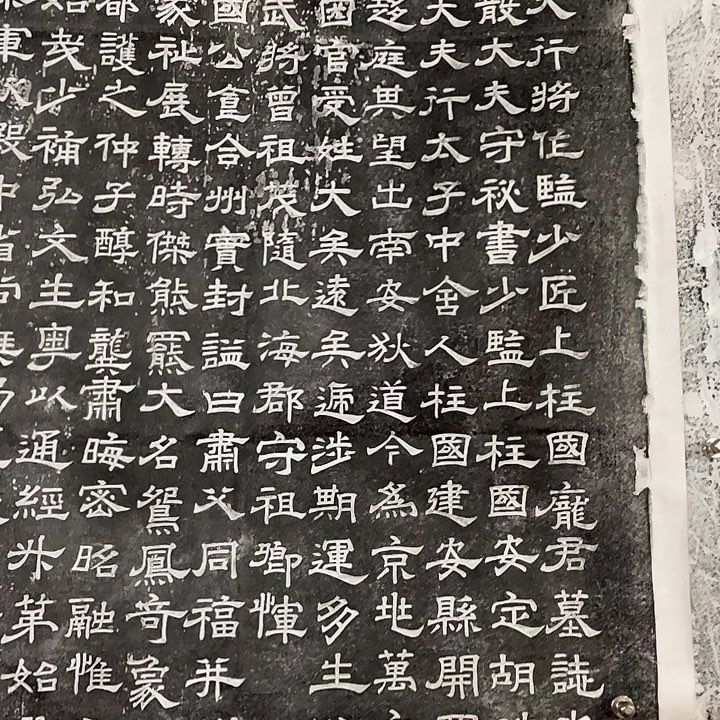 行將作監少匠上柱國龐君墓誌
散大夫守秘書少監上柱國安定胡
大夫行太子中舍人柱國建安縣開
庭其望出南安狄道今為京地萬
因官受姓大矣遠矣遞涉期運多生
武將曾祖茂隨北海郡守祖卿惲
國公食合州實封謚曰肅父同福并
祉展轉時傑熊羆大名鴛鳳奇彖
都護之仲子醇和龔肅晦密昭融惟
少補弘文生粵以通經升第始